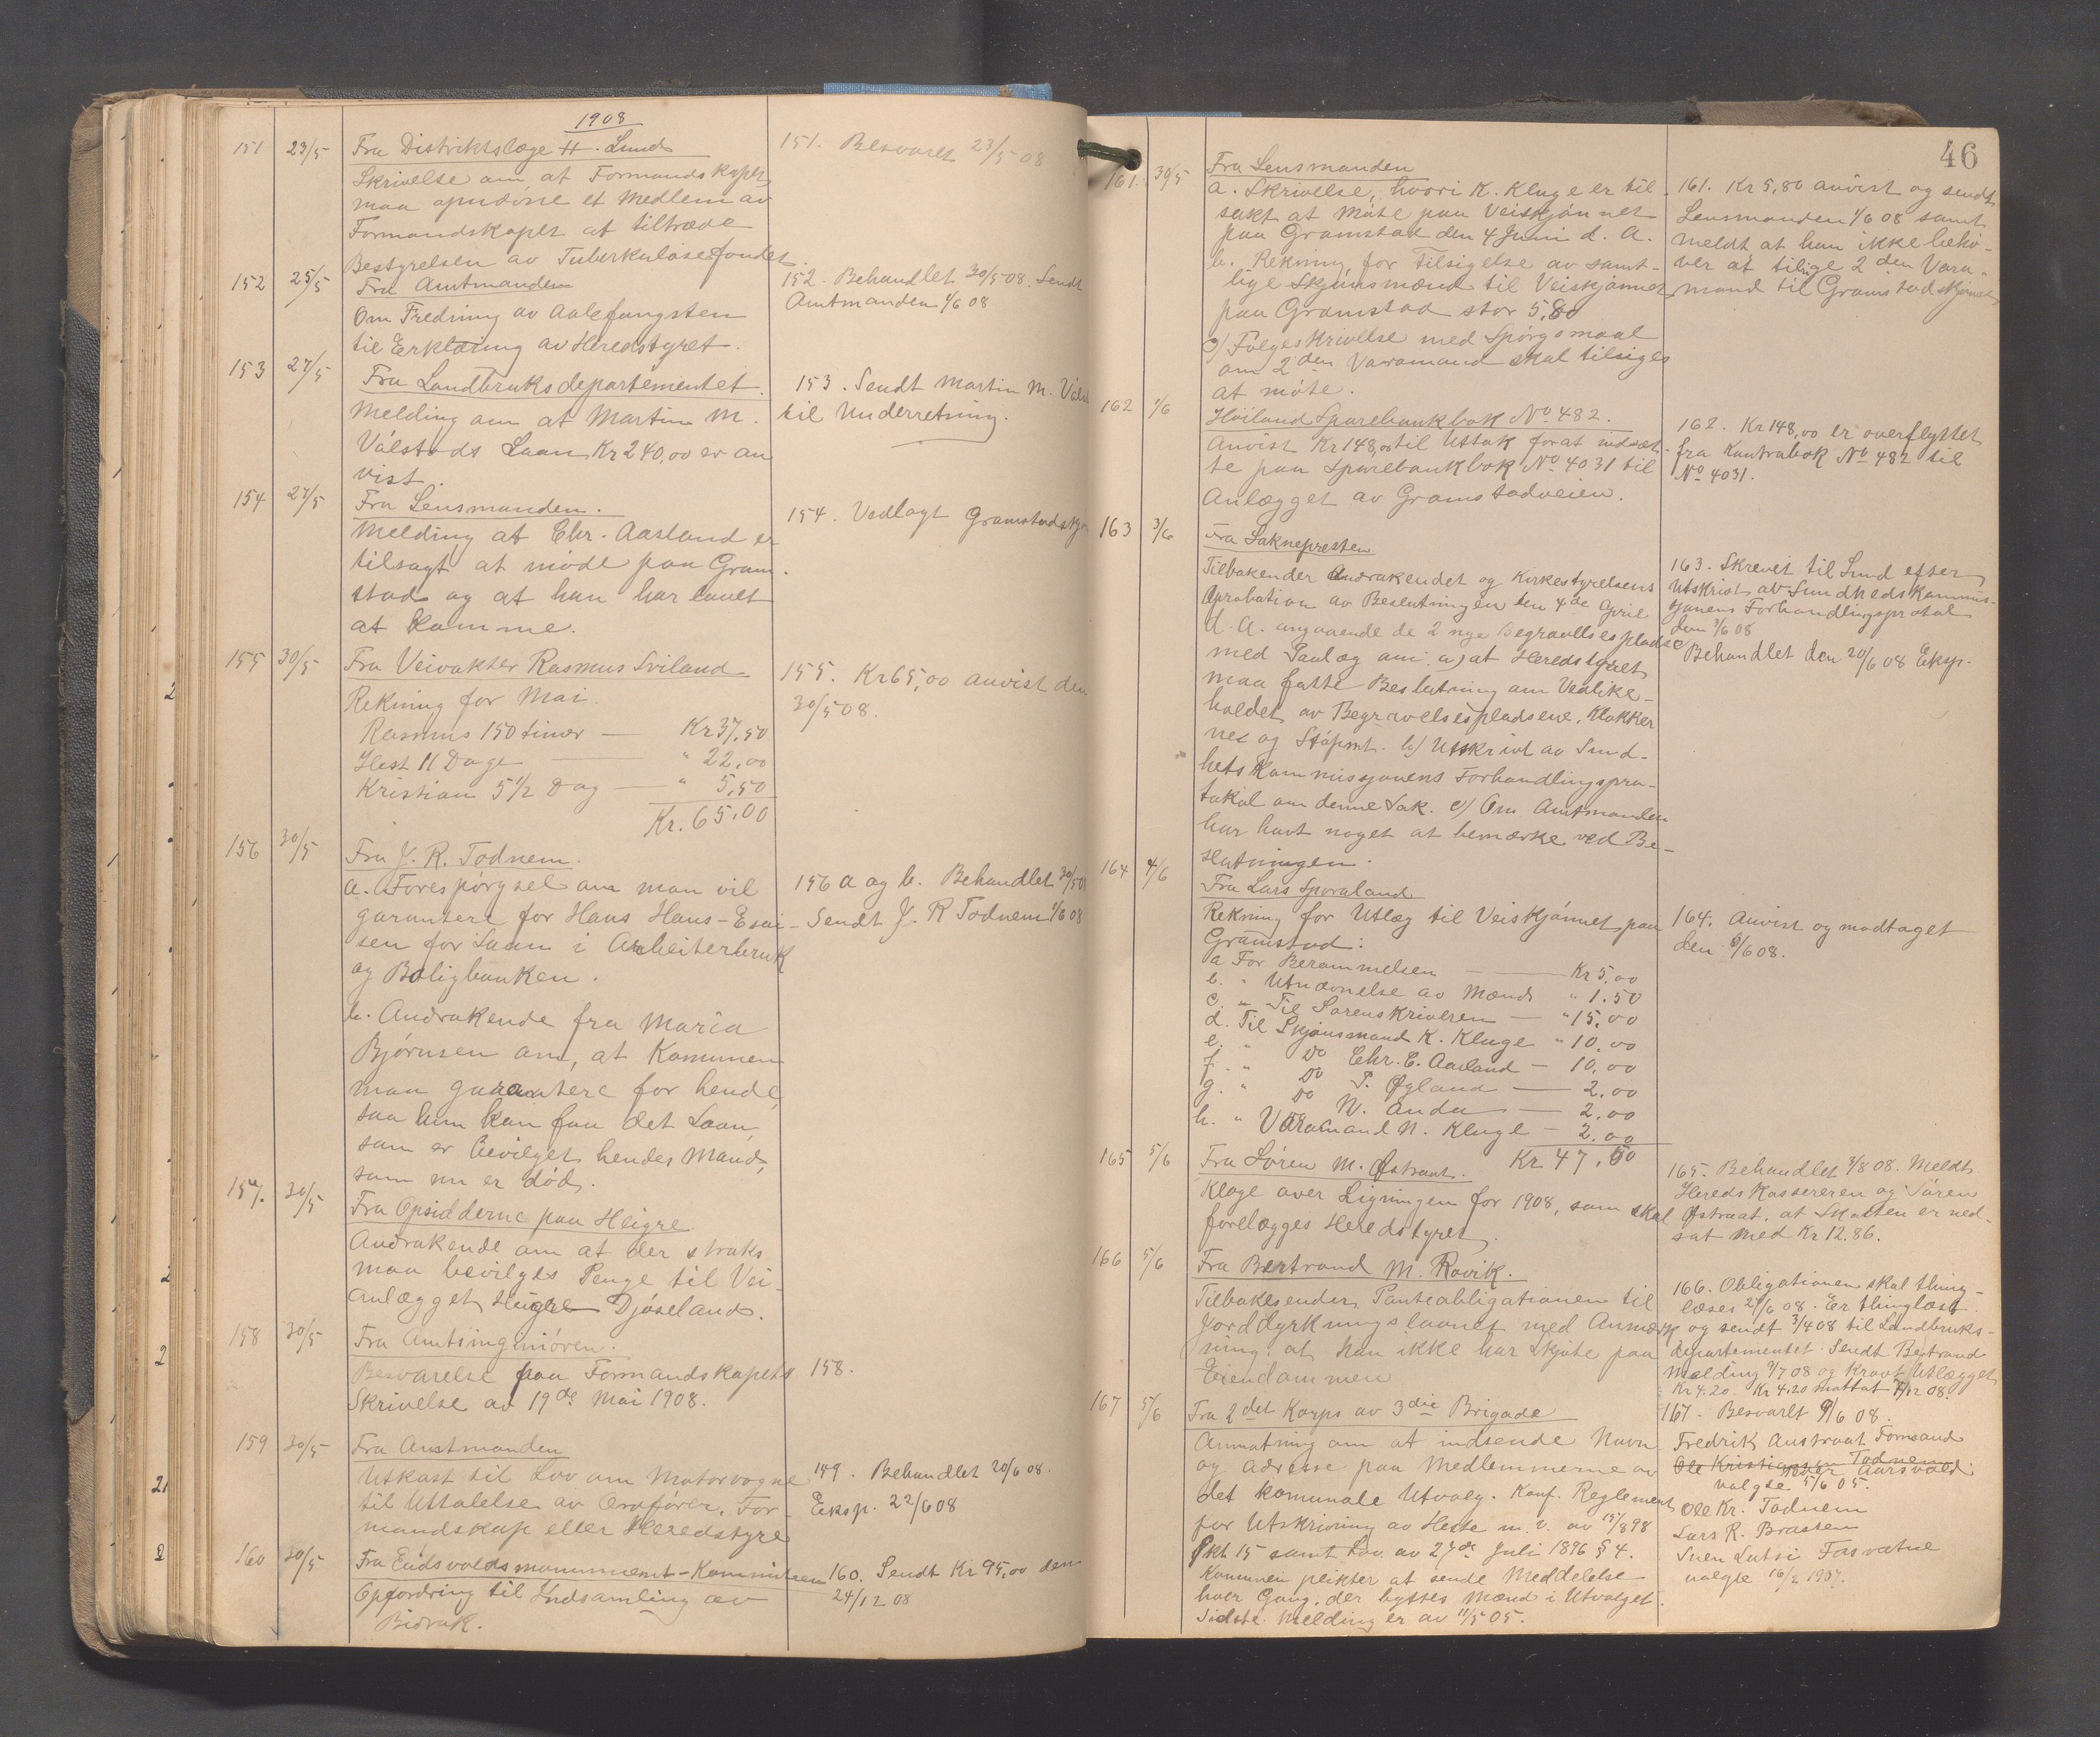 1908
151 23/5 Fra Distriktslæge H. Lund
Skrivelse om, at Formandskapet
maa opnævne et Medlem av
Formandskapet at tiltræde
Bestyrelsen av Tuberkulosefondet.
151. Besvaret 23/5 08
152 25/5 Fra Amtmanden
Om Fredning av Aalefangsten
til Erklæring av Heredstyret.
152. Behandlet 30/5 08. Sendt
Amtmanden 1/6 08
153 27/5 Fra Landbruksdepartementet.
Melding om at Martin M.
Válstads Laan Kr 240,00 er an
vist.
153. Sendt Martin M.
til Underretning.
154 27/5 Fra Lensmanden.
Melding at Chr. Aasland er
tilsagt at møde paa Gram-
stad og at han har lovet
at komme.
154. Vedlagt
155 30/5 Fra Veivakter Rasmus Sviland
Rekning for Mai.
Rasmus 150 timer — Kr 37,50
Hest 11 Dage — " 22,00
Kristian 5 1/2 Dag — " 5,50
Kr. 65.00
155. Kr 65,00 anvist den
30/5 08.
156 30/5 Fra J. R. Todnem.
a. Forespørgsel om man vil
garantere for Hans Hans-Esai-
sen for Laan i Arbeiterbruk
og Boligbanken.
b. Andrakende fra Maria
Bjørnsen om, at Komunen
maa garantere for hende,
saa hun kan faa det Laan,
som er bevilget hendes Mand,
som nu er død.
156 a og b. Behandlet 30/5 08
Sendt J. R Todnem 1/6 08
157. 30/5 Fra Opsidderne paa Heigre
Andrakende om at der straks
maa bevilges Penge til Vei-
anlægget Heigre Djóseland.
158 30/5 Fra Amtsingeniøren.
Besvarelse paa Formandskapets
Skrivelse av 19de Mai 1908.
158.
159 30/5 Fra Amtmanden
Utkast til Lov om Motorvogne
til Uttalelse av Ordfører, For-
mandskap eller Heredstyre
149. Behandlet 20/6 08.
Eksp. 22/6 08
160 30/5 Fra Eidsvoldsmonument-Kommiteen
Opfordring til Indsamling av
Bidrak.
160. Sendt Kr 95,00 den
24/12 08
46
161. 30/5 Fra Lensmanden
a. Skrivelse, hvori K. Kluge er til
sakt at møte paa Veiskjønnet
paa Gramstad den 4 Juni d. A.
b. Rekning for Tilsigelse av samt-
lige Skjønsmænd til Veiskjønnet
paa Gramstad stor 5,80
c) Følgeskrivelse med Spørgsmaal
om 2den Varamand skal tilsiges
at møte.
161. Kr 5,80 anvist og sendt
Lensmanden 1/6 08 samt
meldt at han ikke behø-
ver at tilsige 2den Vara-
mand til Gramstadskjønnet
162 1/6 Høiland Sparebankbok No 482.
Anvist Kr 148,00 til Uttak forat indsæt-
te paa Sparebankbok No 4031 til
Anlægget av Gramstadveien.
162. Kr 148,00 er overflyttet
fra Kontrabok No 482 til
No 4031.
163 3/6 Fra Soknepresten
Tilbakesender Andrakendet og Kirkestyrelsens
Aprobation av Beslutningen den 4de April
d. A. angaaende de 2 nye Begravelsespladse
med Paalæg om: a) at Heredstyret
maa fatte Beslutning om Vedlike-
holdet av Begravelsespladsene, Klokker
nes og Støpmt. b) Utskrivt av Sund-
hets Kommissjonens Forhandlingspro-
tokol om denne Sak. c) Om Amtmanden
har havt noget at bemærke ved Be-
slutningen.
163. Skrevet til Lund efter
Utskrivt av Sundheds Kommis-
sjonens Forhandlingsprotokol
den 3/6 08
Behandlet den 20/6 08 Eksp.
164 4/6 Fra Lars Sporaland
Rekning for Utlæg til Veiskjønnet paa
Gramstad:
a For Berammelsen — Kr 5,00
b. " Utnævnelse av Mænd " 1.50
c. " Til Sorenskriveren — " 15,00
d. Til Skjønsmand K. Kluge " 10,00
e. " Do Chr. E. Aasland — 10,00
f. " Do P. Øgland — 2,00
g. " Do N. Anda — 2,00
h. " Varamand N. Kluge — 2.00
Kr 47.50
164. Anvist og modtaget
den 6/6 08.
165 5/6 Fra Søren M. Østraat.
Klage over Ligningen for 1908, som skal
forelægges Heredstyret.
165. Behandlet 3/8 08. Meldt
Hereds Kassereren og Søren
Østraat, at Skatten er ned-
sat med Kr 12.86.
166 5/6 Fra Bertrand M. Rovik.
Tilbakesender Panteobligationen til
Jorddyrkningslaanet med Anmerk
ning, at han ikke har skjøte paa
Eiendommen
166. Obligationen skal thing-
læses 27/6 08. Er thinglæst
og sendt 3/4 08 til Landbruks-
departementet. Sendt Bertrand
Melding 9/7 08 og Kravt Utlægget
Kr 4.20. Kr 4.20 mottat 7/12 08.
167 5/6 Fra 2det Korps av 3die Brigade
Anmotning om at indsende Navn
og Adresse paa Medlemmerne av
det komunale Utvalg. Konf. Reglement
for Utskrivning av Heste m. v. av 15/8 98
Pkt 15 samt Lov av 27de Juli 1896 § 4.
Komunen plikter at sende Meddelelse
hver Gang, der byttes Mænd i Utvalget.
Sidste Melding er av 11/5 05.
167. Besvarlt 9/6 08.
Fredrik Austraat Formand
Ole Kristiansen Todnem
Aarsvold
valgte 5/6 05.
Ole Kr. Todnem
Lars R. Brasten
valgte 16/2 1907.